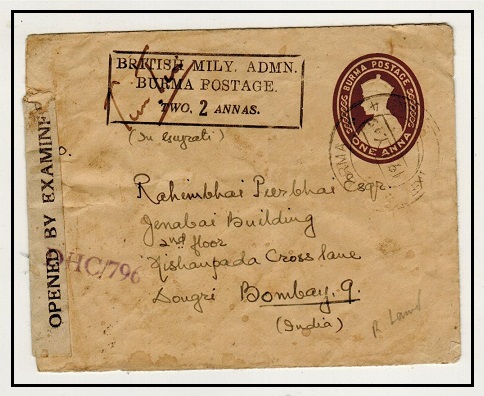 BRITISH MILY. ADMN.
BURMA POSTAGE.
TWO. 2 ANNAS.
BURMA POSTAGE
ONE ANNA
(In Gujrati)
Rahimbhai Peerbhai Esqr.
Jenabai Building
2nd floor
Kishanpada Cross lane
Dongri Bombay. 9.
(India)
OPENED BY EXAMINE
DHC/796